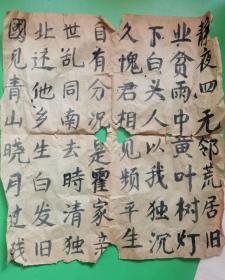 静夜四无邻荒居旧
业贫雨中黄叶树灯
下白头人以我独沉
久愧君相见频平生
自有分况是霍家亲
世乱同南去時清独
北还他乡生白发旧
國见青山晓月过残